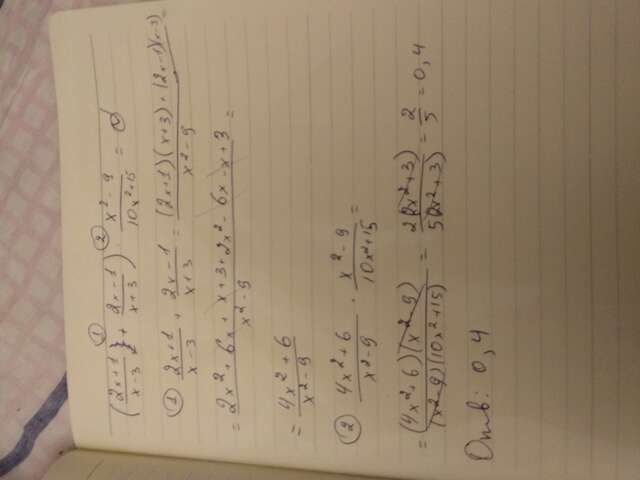 ① ②
((2x+1)/(x-3) + (2x-1)/(x+3)) · (x²-9)/(10x²+15) =
① (2x+1)/(x-3) + (2x-1)/(x+3) = ((2x+1)(x+3)+(2x-1)(x-3))/(x²-9) =
= (2x²+6x+x+3+2x²-6x-x+3)/(x²-9) =
= (4x²+6)/(x²-9)
② (4x²+6)/(x²-9) · (x²-9)/(10x²+15) =
= ((4x²+6)(x²-9))/((x²-9)(10x²+15)) = (2(2x²+3))/(5(2x²+3)) = 2/5 = 0,4
Отв: 0,4